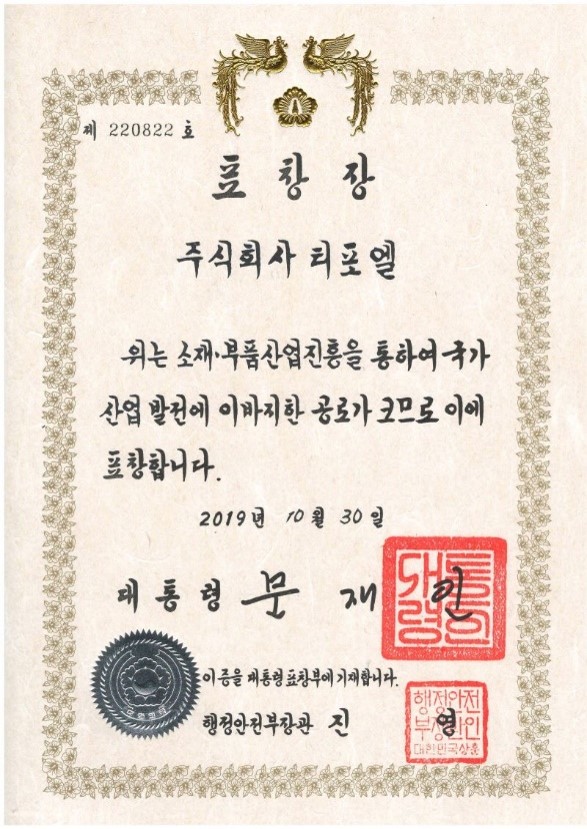 제 220822 호
표창장
주식회사 티포엘
위는 소재·부품산업진흥을 통하여 국가
산업 발전에 이바지한 공로가 크므로 이에
표창합니다.
2019년 10월 30일
대통령 문재인
대통령의인
이 증을 대통령표창부에 기재합니다.
행정안전부장관 진영
행정안전
부장관인
대한민국상훈